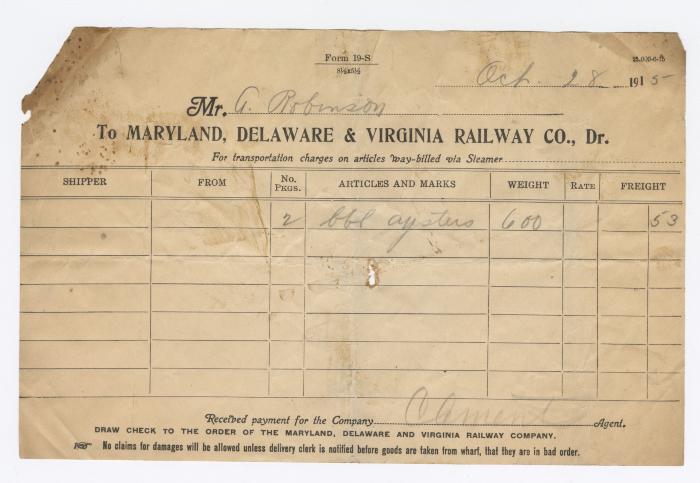 Form 19-S
8½x5½
25,000-6-15
Oct. 28 1915
Mr. A. Robinson
To MARYLAND, DELAWARE & VIRGINIA RAILWAY CO., Dr.
For transportation charges on articles way-billed via Steamer
SHIPPER FROM No. PKGS. ARTICLES AND MARKS WEIGHT RATE FREIGHT
2 bbl oysters 600 53
Received payment for the Company Agent.
DRAW CHECK TO THE ORDER OF THE MARYLAND, DELAWARE AND VIRGINIA RAILWAY COMPANY.
No claims for damages will be allowed unless delivery clerk is notified before goods are taken from wharf, that they are in bad order.